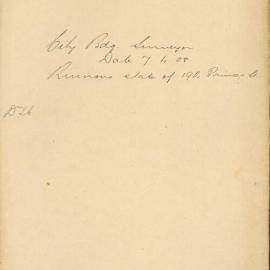 City Bdg Surveyor
Date 7/4 08
Ruinous state of 192 Princes St